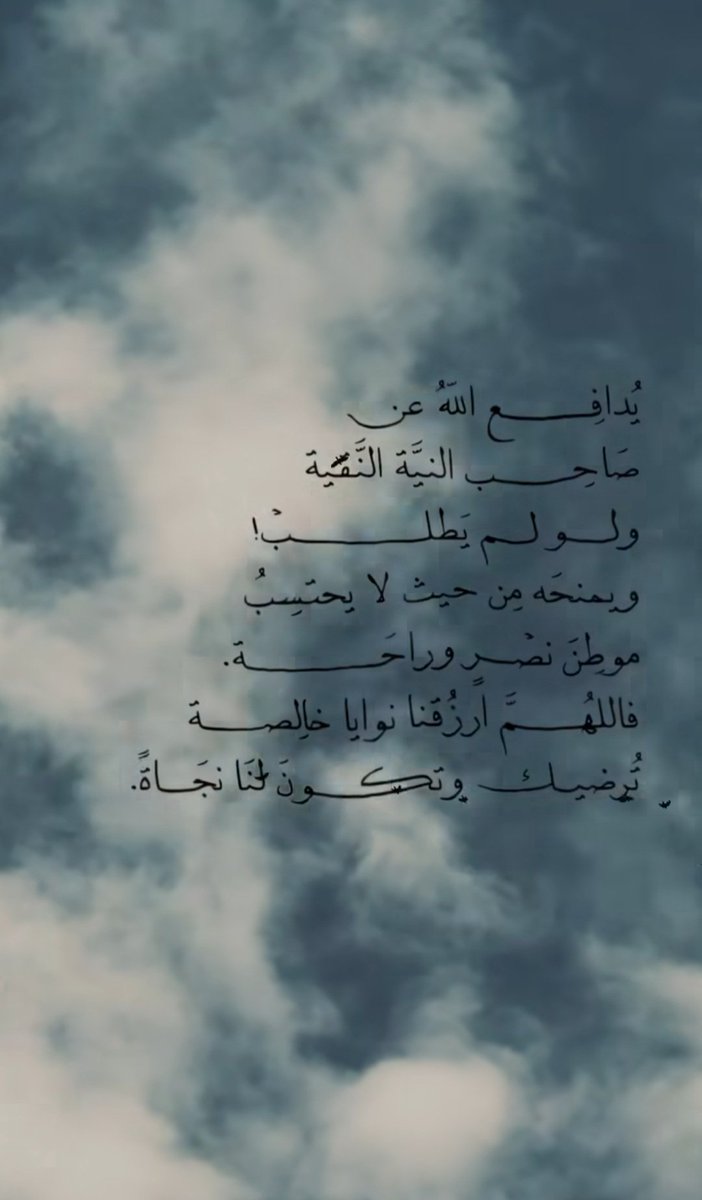 يُدافِع اللَّهُ عن
صَاحِب النيَّة النَّقية
ولو لم يَطلب!
ويمنحَه مِن حيث لا يحتسِبُ
موطِنَ نصْرٍ وراحَة.
فاللهُمَّ ارزُقنا نوايا خالِصة
تُرضيك وتكونَ لنَا نجَاةً.